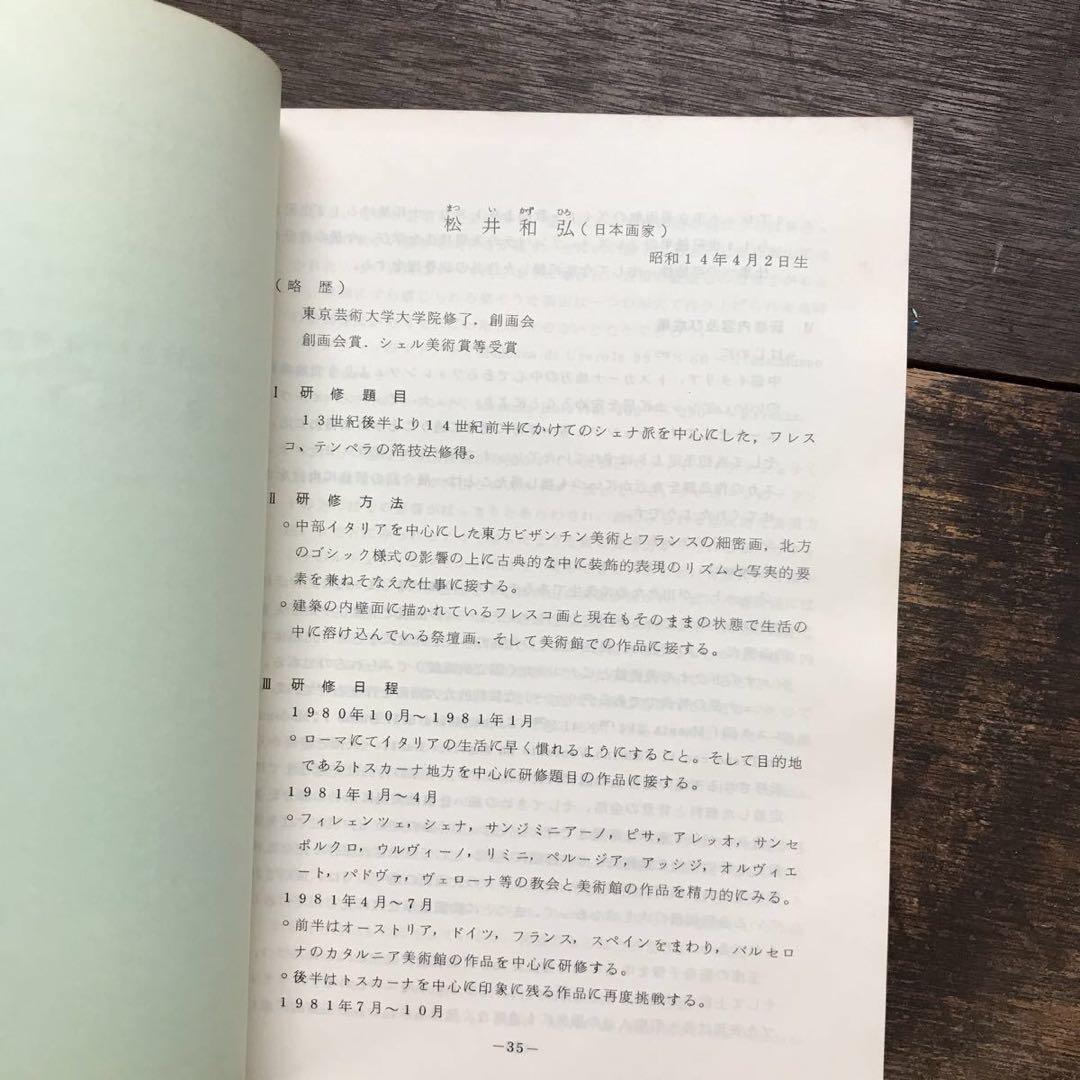 まつ い かず ひろ
松井和弘(日本画家)
昭和14年4月2日生
(略歴)
東京芸術大学大学院修了.創画会
創画会賞.シェル美術賞等受賞
Ⅰ 研修題目
13世紀後半より14世紀前半にかけてのシェナ派を中心にした,フレス
コ、テンペラの箔技法修得。
Ⅱ 研修方法
○中部イタリアを中心にした東方ビザンチン美術とフランスの細密画,北方
のゴシック様式の影響の上に古典的な中に装飾的表現のリズムと写実的要
素を兼ねそなえた仕事に接する。
○建築の内壁面に描かれているフレスコ画と現在もそのままの状態で生活の
中に溶け込んでいる祭壇画.そして美術館での作品に接する。
Ⅲ 研修日程
1980年10月~1981年1月
○ローマにてイタリアの生活に早く慣れるようにすること。そして目的地
であるトスカーナ地方を中心に研修題目の作品に接する。
1981年1月~4月
○フィレェンツェ,シェナ,サンジミニアーノ,ピサ,アレッオ,サンセ
ポルクロ,ウルヴィーノ,リミニ,ペルージア,アッシジ,オルヴィエ
ート,パドヴァ,ヴェローナ等の教会と美術館の作品を精力的にみる。
1981年4月~7月
○前半はオーストリア,ドイツ,フランス,スペインをまわり,バルセロ
ナのカタルニア美術館の作品を中心に研修する。
○後半はトスカーナを中心に印象に残る作品に再度挑戦する。
1981年7月~10月
—35—